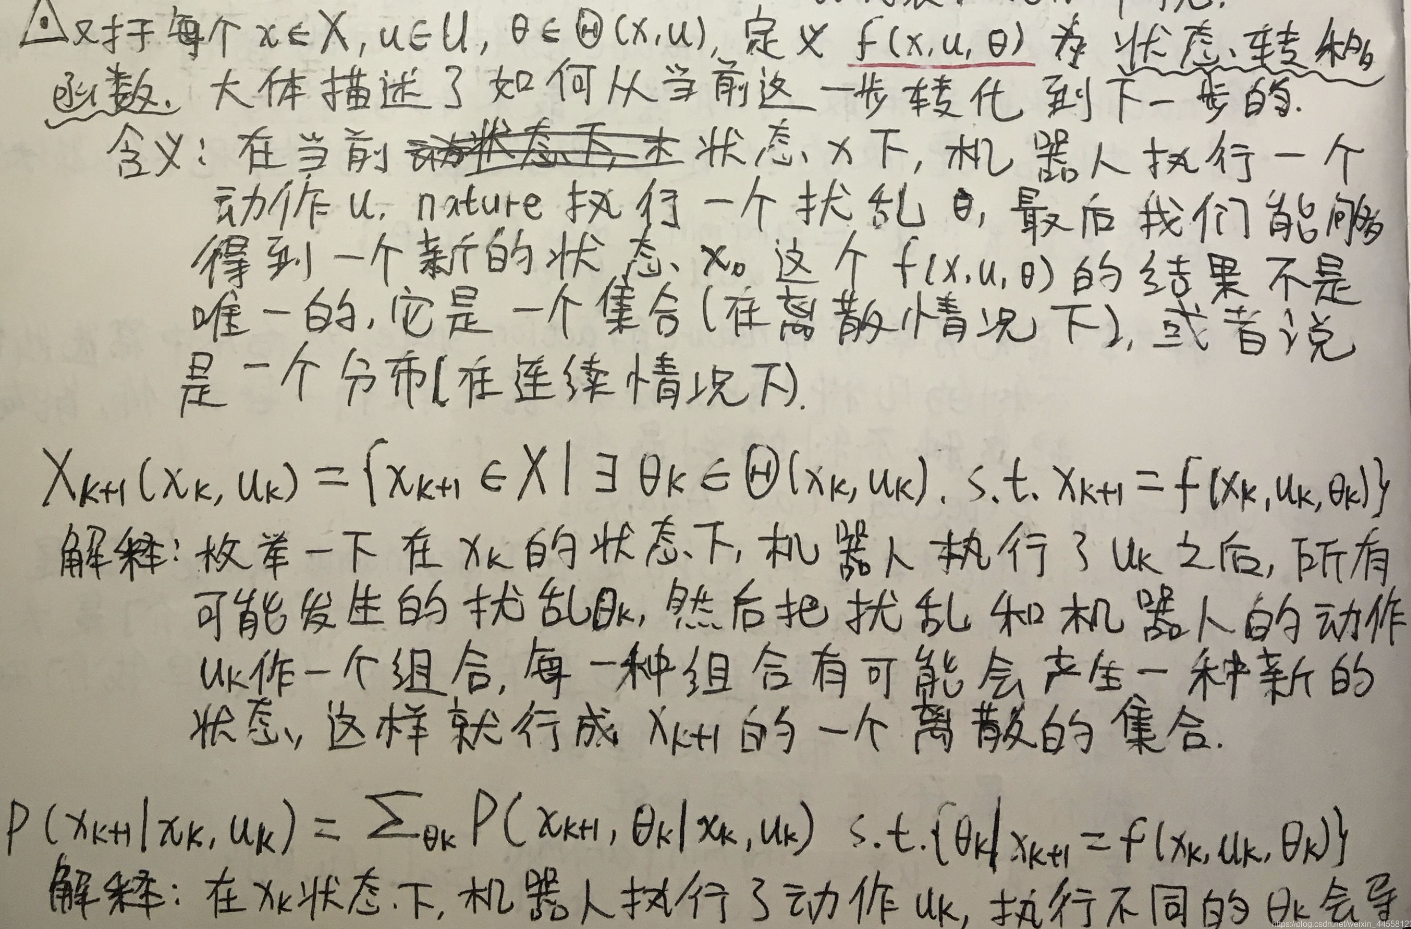 △对于每个 x∈X, u∈U, θ∈Θ(x,u), 定义 f(x,u,θ) 为 状态转移
函数. 大体描述了如何从当前这一步转化到下一步的.
含义: 在当前 状态 x 下, 机器人执行一个
动作 u. nature 执行一个扰乱 θ, 最后我们能够
得到一个新的状态 x。这个 f(x,u,θ) 的结果不是
唯一的, 它是一个集合(在离散情况下), 或者说
是一个分布(在连续情况下).
X_{k+1}(x_k, u_k) = {x_{k+1} ∈ X | ∃ θ_k ∈ Θ(x_k, u_k). s.t. x_{k+1} = f(x_k, u_k, θ_k)}
解释: 枚举一下在 x_k 的状态下, 机器人执行了 u_k 之后, 所有
可能发生的扰乱θ_k, 然后把扰乱和机器人的动作
u_k作一个组合, 每一种组合有可能会产生一种新的
状态, 这样就行成 x_{k+1} 的一个离散的集合.
P(x_{k+1}|x_k, u_k) = Σ_{θ_k} P(x_{k+1}, θ_k|x_k, u_k) s.t.{θ_k|x_{k+1} = f(x_k, u_k, θ_k)}
解释: 在 x_k 状态下, 机器人执行了动作 u_k, 执行不同的 θ_k 会导